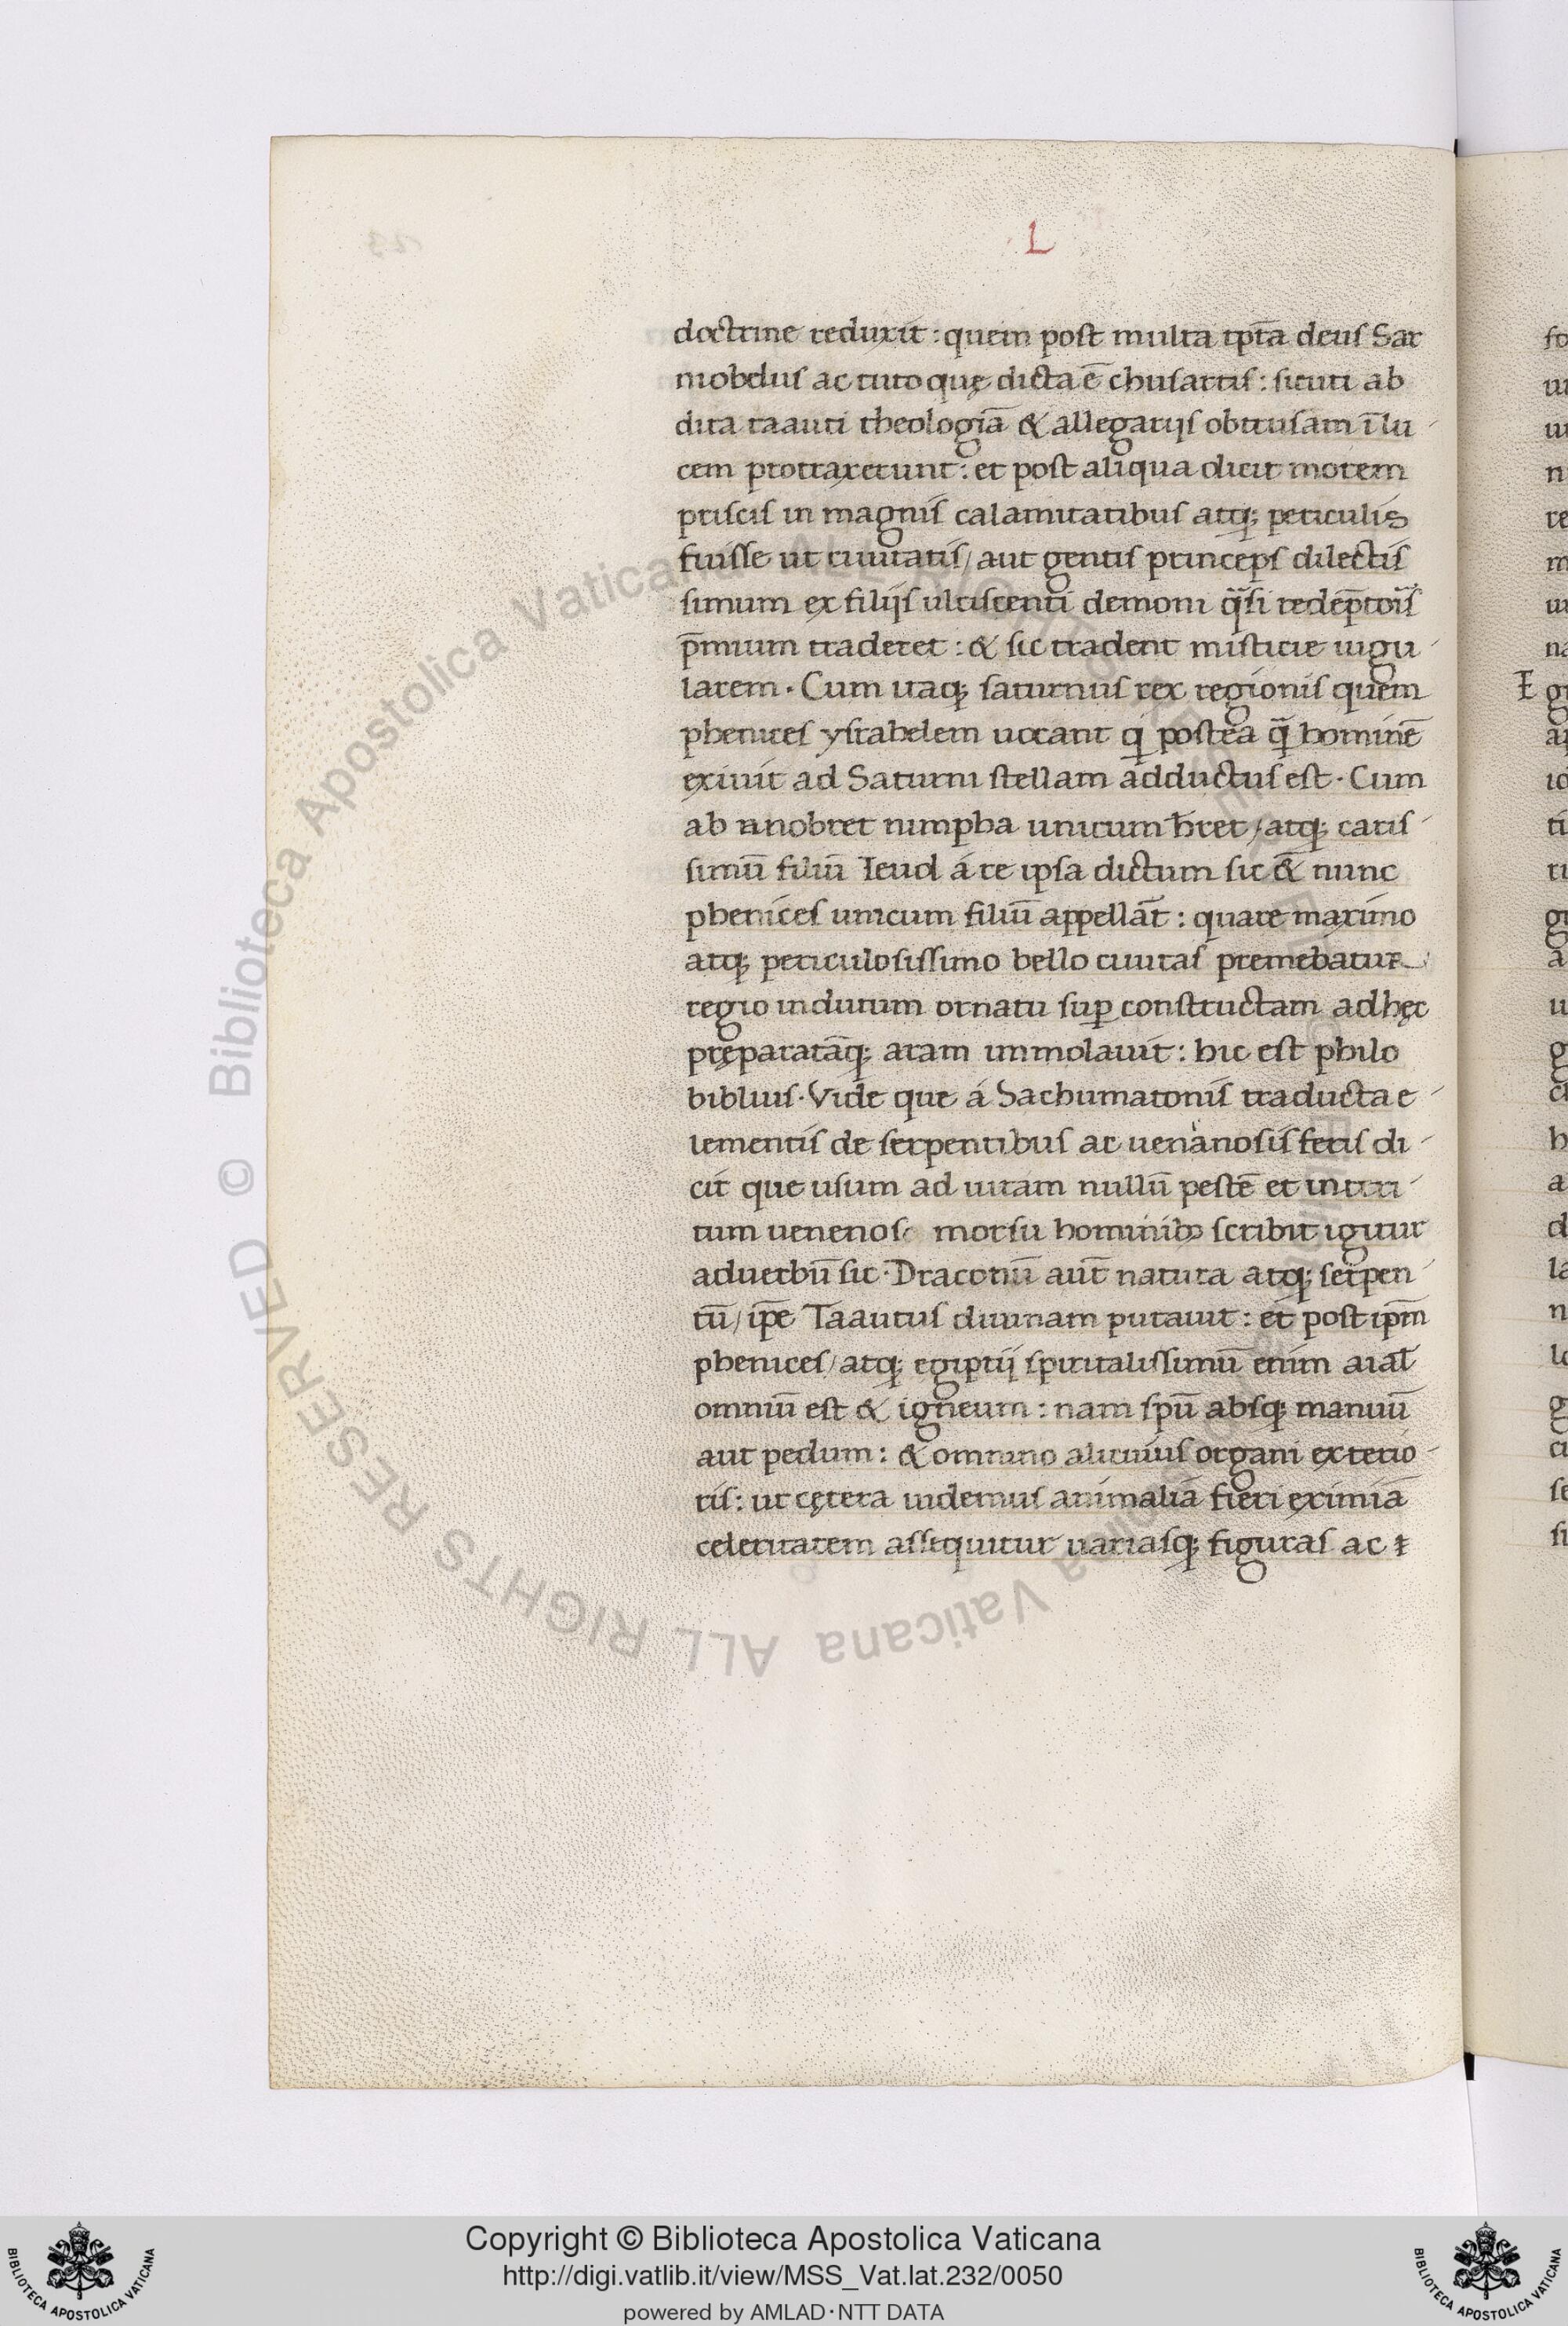 L
doctrine reduxit : quem post multa tp̄ra deus Sar
mobelus ac turo quę dicta ē chusartis : sicuti ab
dita taauti theologiā & allegariis obtrusam ī lu-
cem protraxerunt : et post aliqua dicit morem
priscis in magnis calamitatibus atq; periculis
fuisse ut ciuitatis / aut gentis princeps dilectis
simum ex filijs ultiscenti demoni q̄si redēptoris
p̄mium traderet : & sic tradent misticie iugu-
larem . Cum itaq; saturnus rex regionis quem
phenices ysrahelem uocant q̣ postea q̄ hominē
exiuit ad Saturni stellam adductus est . Cum
ab anobret nimpha unicum h̄ret / atq; caris-
simū filiū Ieud á re ipsa dictum sic & nunc
phenices unicum filiū appellāt : quare maximo
atq; periculosissimo bello ciuitas premebatur
regio indutum ornatu sup̱ constructam ad hęc
pręparatāq; aram immolauit : hic est philo
biblius . Vide que á Sachumatonis traducta e-
lementis de serpentibus ac uenanosis feris di-
cit que usum ad uitam nullū pestē et interi-
tum morsu hominib; scribit igitur
aduerbū sic . Draconū aūt natura atq; serpen-
tū / ip̄e Taautus diuinam putauit : et post ip̄m
phenices / atq; egiptij spiritalissimū enim aial̄
omniū est & igneum : nam sp̄u absq; manuū
aut pedum : & omnino alicuius organi exterio-
ris : ut cętera uidemus animaliā fieri eximiā
celeritatem assequitur uariasq; figuras ac t
Copyright © Biblioteca Apostolica Vaticana
http://digi.vatlib.it/view/MSS_Vat.lat.232/0050
powered by AMLAD·NTT DATA